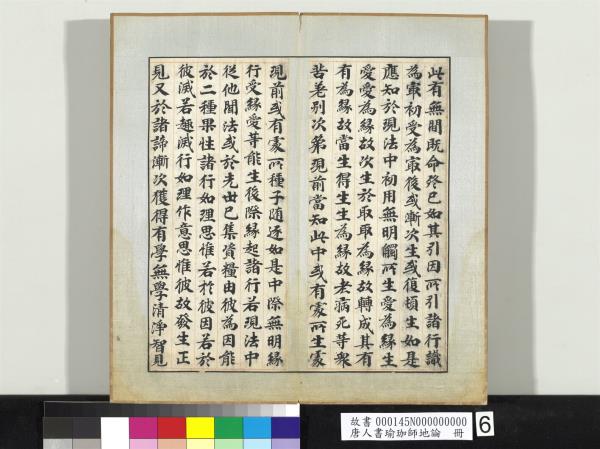 此有無間既命終已如其引因所引諸行識
為最初受為最後或漸次生或復頓生如是
應知於現法中初用無明觸所生受為緣生
愛愛為緣故次生於取取為緣故轉成其有
有為緣故當生得生生為緣故老病死等衆
苦差別次第現前當知此中或有處所生處
現前或有處所種子随逐如是中際無明緣
行受緣愛等能生後際緣起諸行若現法中
從他聞法或於先世已集資糧由彼為因能
於二種果性諸行如理思惟若於彼因若於
彼滅若趣滅行如理作意思惟彼故發生正
見又於諸諦漸次獲得有學無學清淨智見
故書 000145N000000000
唐人書瑜珈師地論 冊
6